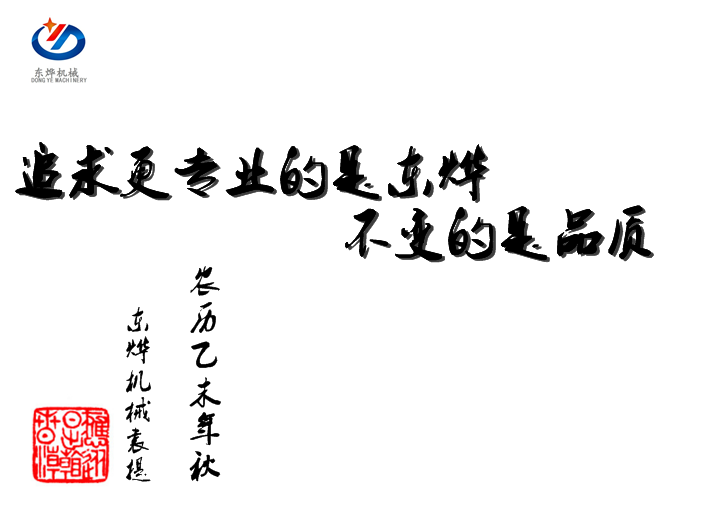 东烨机械
DONG YE MACHINERY
追求更专业的是东烨
不变的是品质
农历乙未年秋
东烨机械袁提